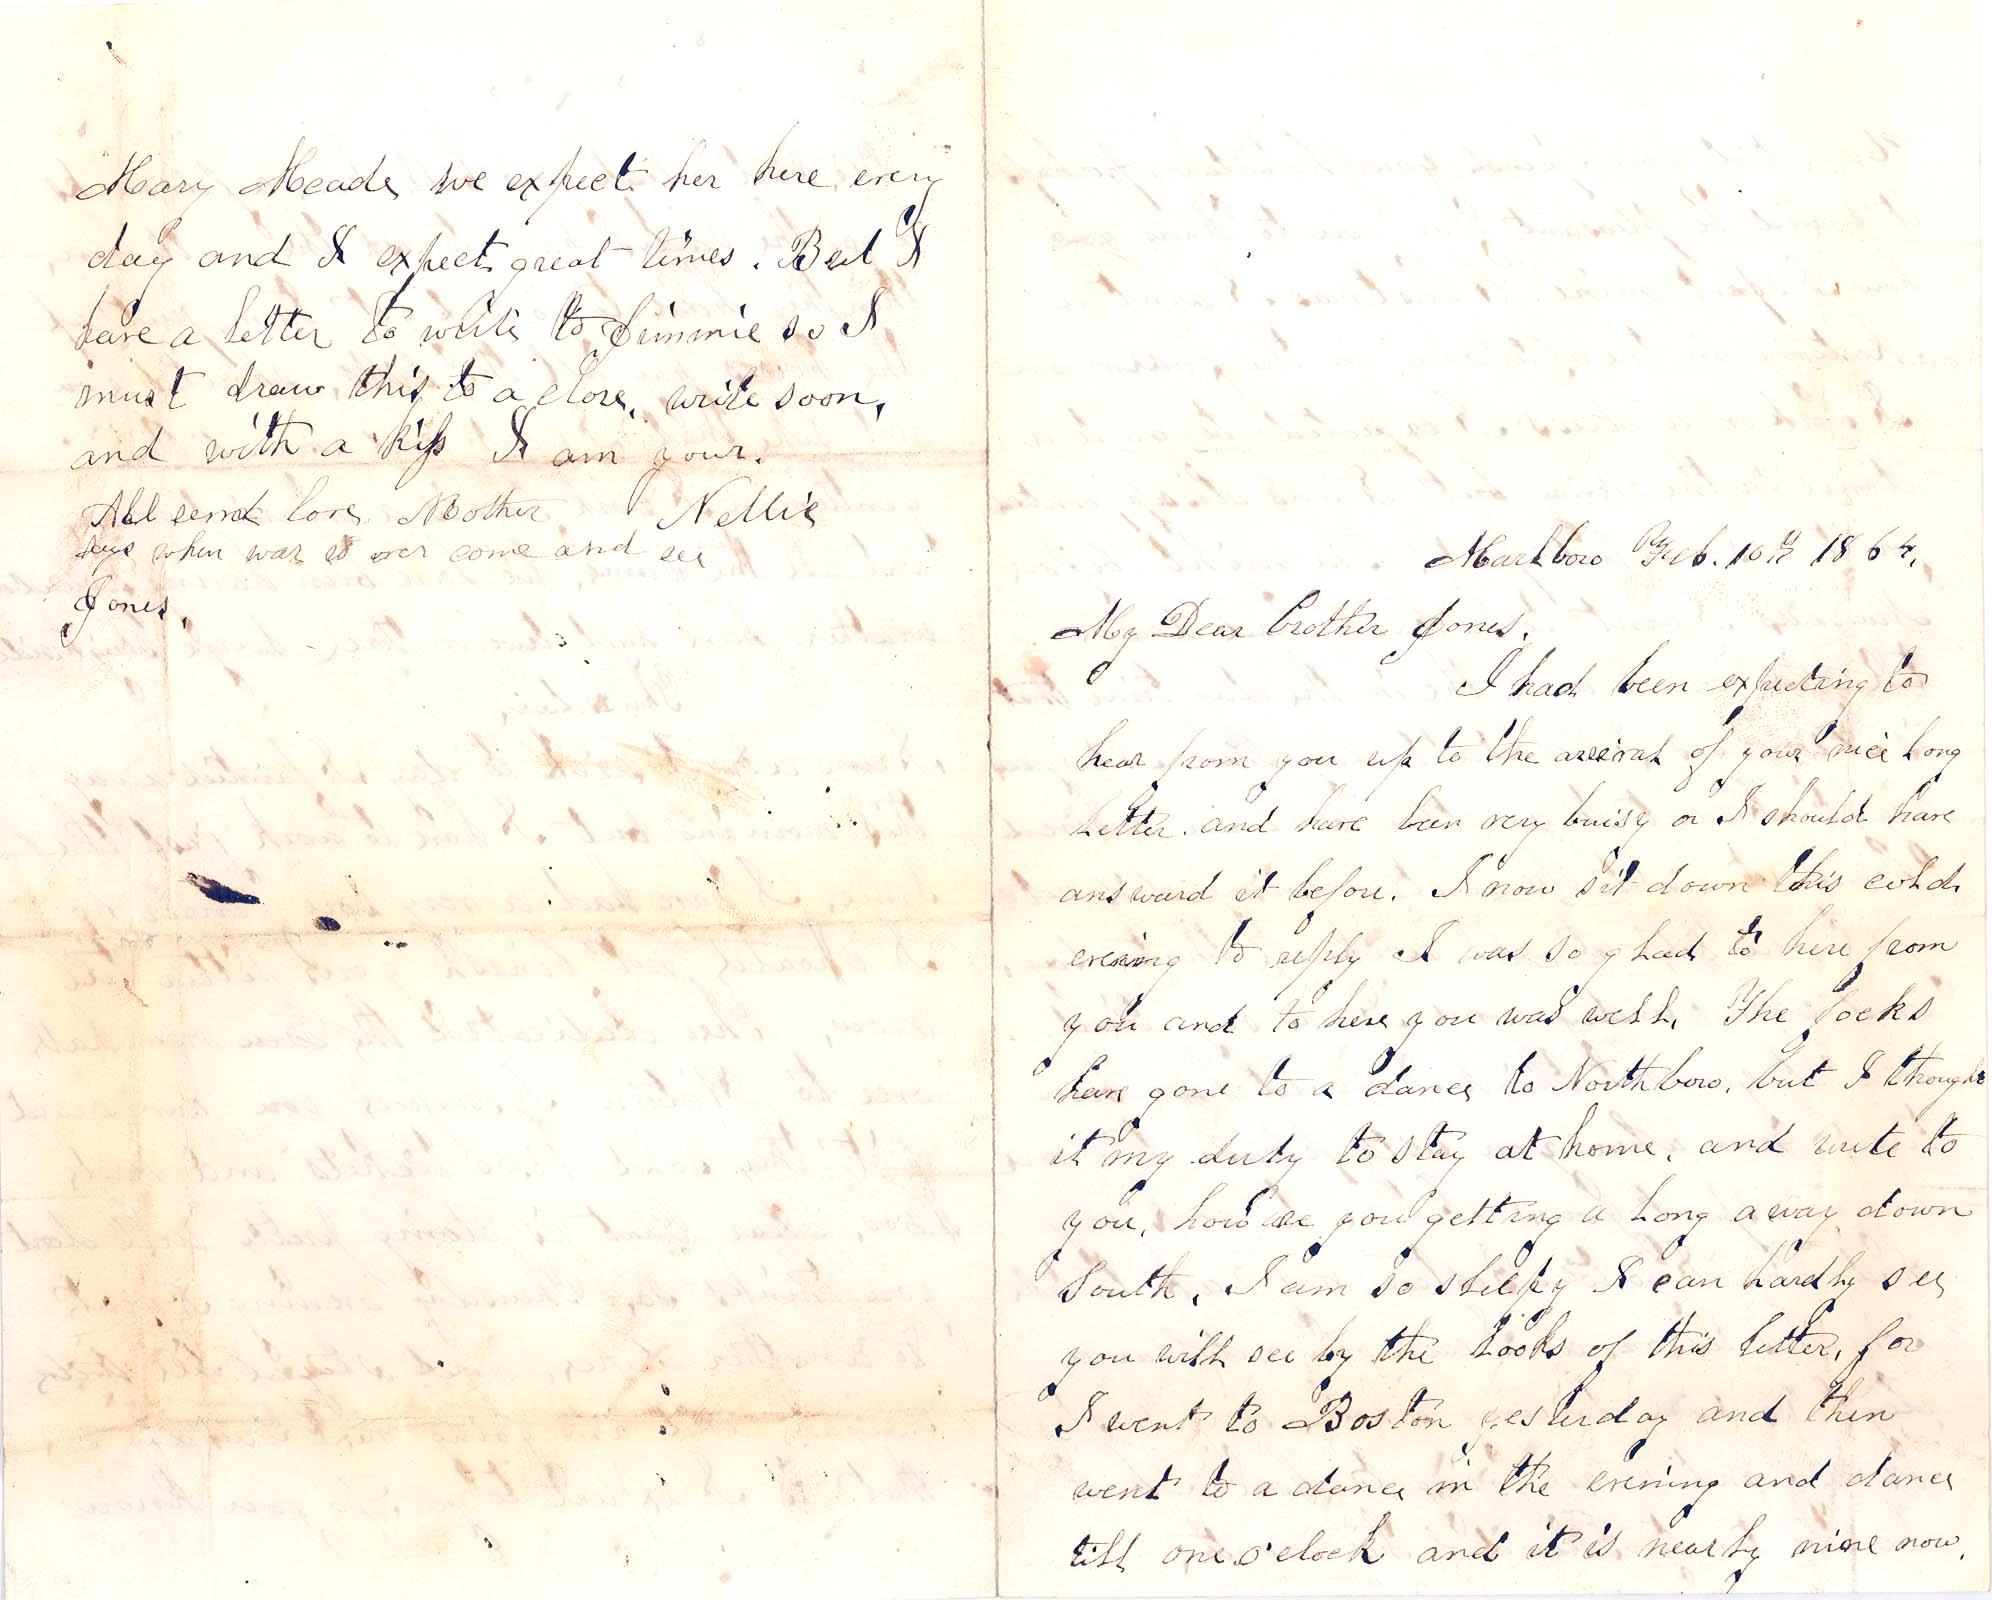 Mary Meade we expect her here every
day and I expect great times. But I
have a letter to write to Jimmie so I
must draw this to a close, write soon,
and with a kiss I am your.
All send love Mother Nellie
says when war is over come and see
Jones.
Marlboro Feb. 10th 1864.
My Dear brother Jones.
I had been expecting to
hear from you up to the arrival of your nice long
letter. and have been very buisy or I should have
answard it before. I now sit down this cold
evening to reply I was so glad to here from
you and to here you was well. The focks
have gone to a dance to Northboro. but I thought
it my duty to stay at home. and write to
you, how are you getting a long away down
South. I am so sleepy I can hardly see
you will see by the looks of this letter, for
I went to Boston yesterday and then
went to a dance in the evening and dance
till one o'clock and it is nearly nine now.